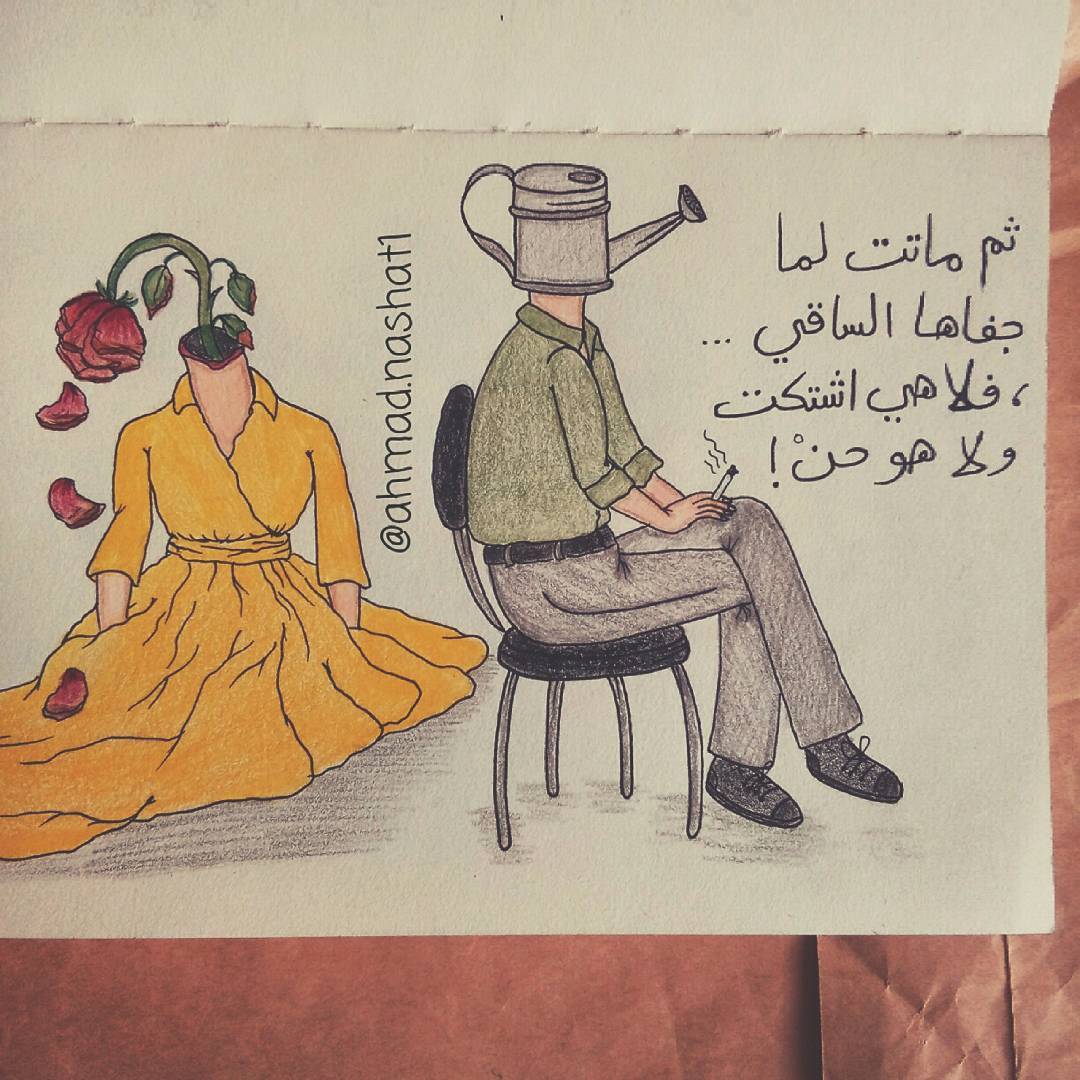 ثم ماتت لما
جفاها الساقي ...
، فلا هي اشتكت
ولا هو حنْ !
@ahmad.nashat1